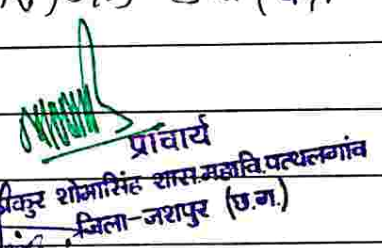 प्राचार्य
शोभासिंह शास.महावि.पत्थलगांव
जिला-जशपुर (छ.ग.)